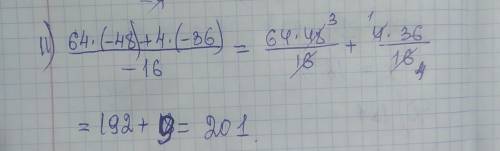 11) (64·(-48)+4·(-36))/(-16) = (64·48)/16 3 + (4·36)/16 1 4
= 192 + 9 = 201.